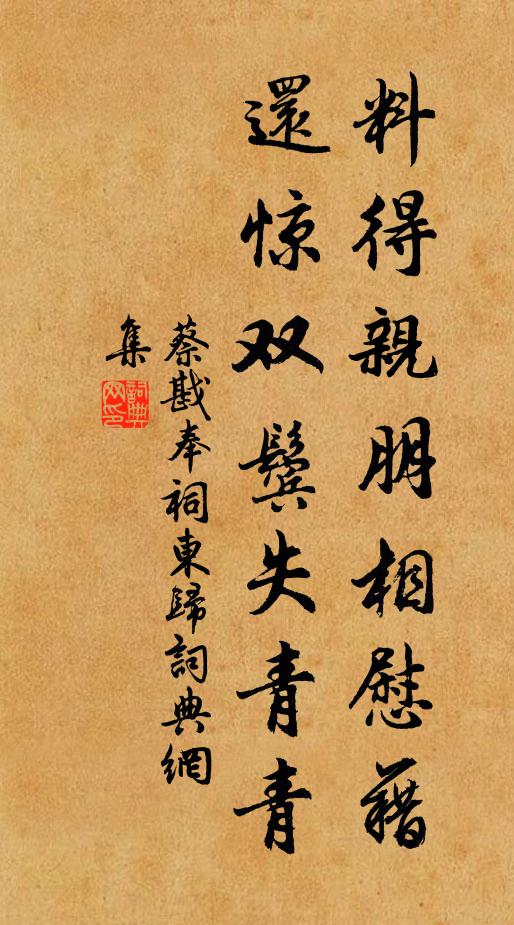 料得親朋相慰藉
還惊双鬓失青青
蔡戡奉祠東歸詞典網
集
詞典
网印